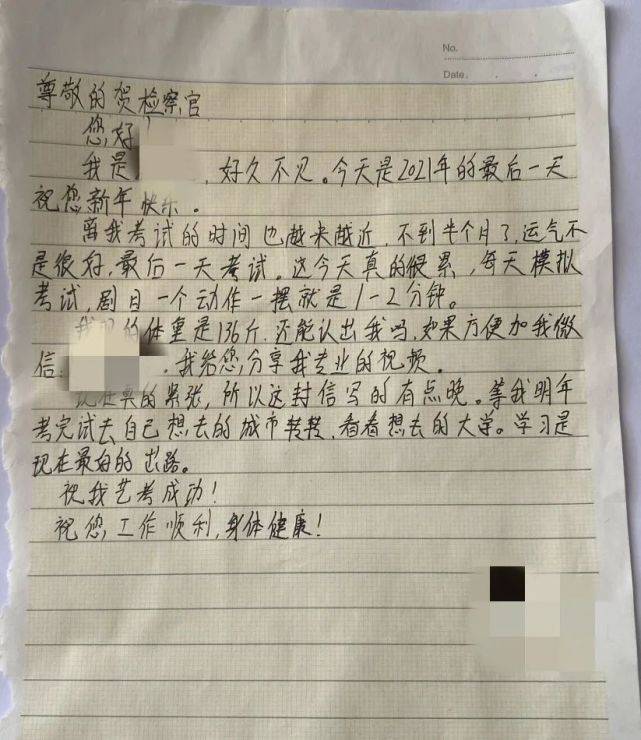 No.
Date.
尊敬的贺检察官
您好!
我是 ,好久不见。今天是2021年的最后一天
祝您新年快乐。
离我考试的时间也越来越近,不到半个月了,运气不
是很好,最后一天考试。这今天真的很累,每天模拟
考试,剧目一个动作一摆就是1-2分钟。
的体重是136斤.还能认出我吗,如果方便加我微
信: ,我给您分享我专业的视频。
现在真的紧张,所以这封信写的有点晚。等我明年
考完试去自己想去的城市转转,看看想去的大学。学习是
现在最好的出路。
祝我艺考成功!
祝您工作顺利,身体健康!